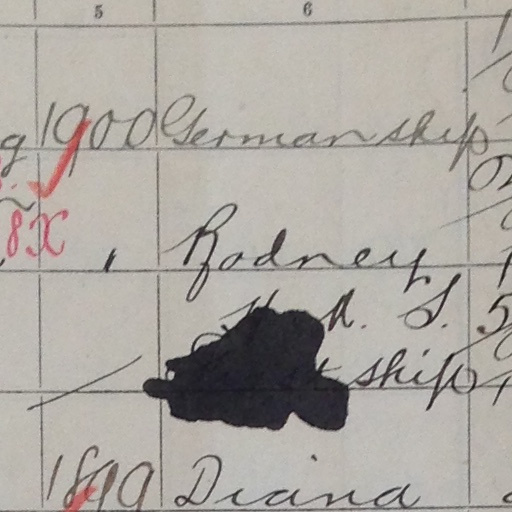 5 6
1900 German ship
8X Rodney
S. 5
ship
1899 Diana